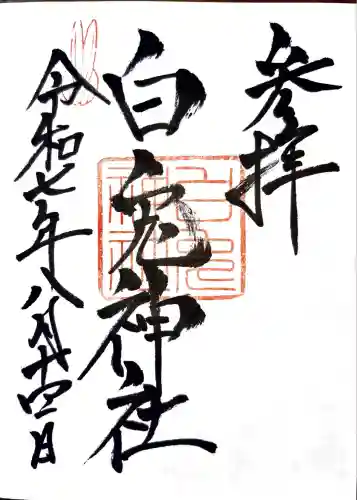 参拝
白兎神社
令和七年八月廿四日